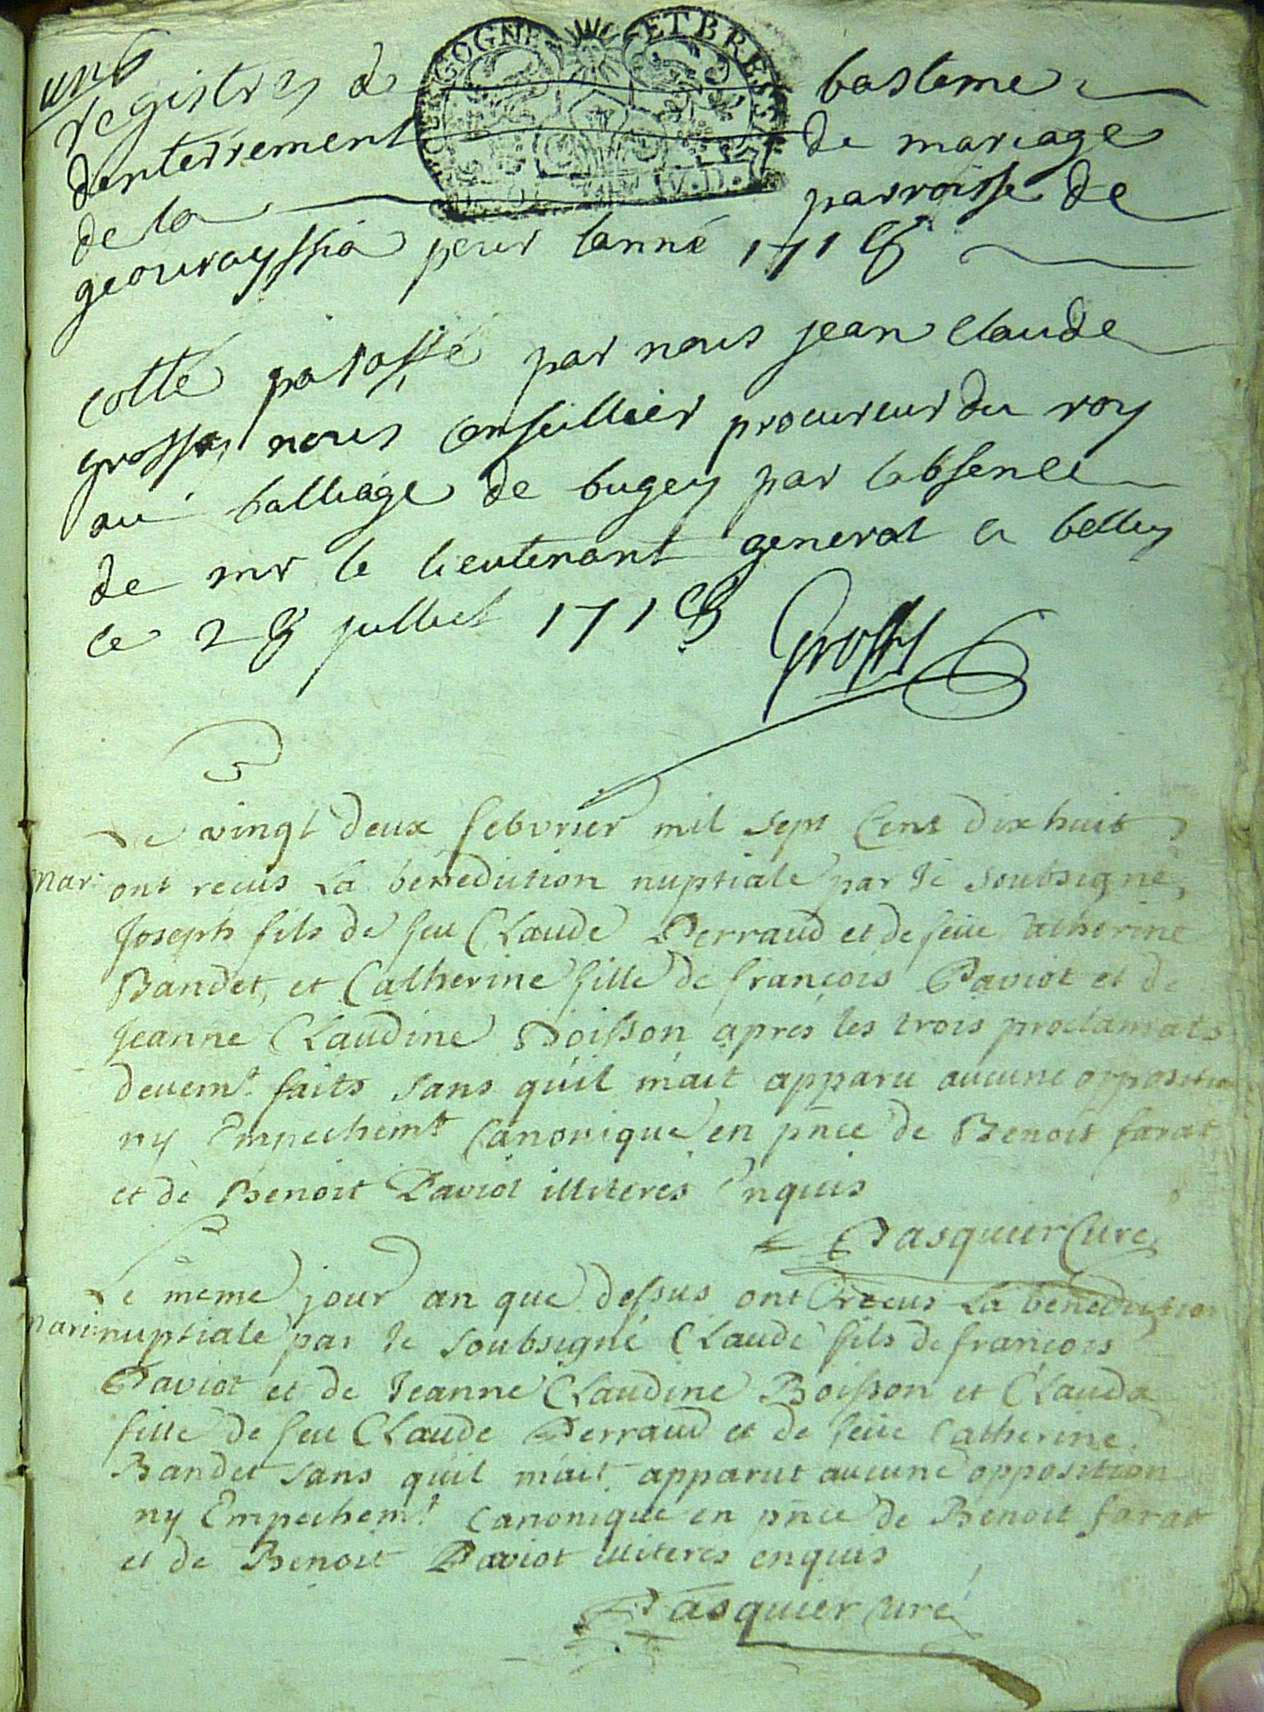 une
registres de basteme
denterrement de mariage
de la parroisse de
geourayssia pour lanné 1718
cotté parafé par nous jean claude
grosse nous conseillier procureur du roy
au balliage de bugey par labsence
de mr le lieutenant general a belley
ce 28 juillet 1718
Grosse
BOURGOGNE ET BRESSE
Le vingt deux febvrier mil sept cent dix huit
mar: ont reçus la benediction nuptiale par Je soubsigné,
Joseph fils de feu Claude Perraud et de feüe Catherine
Bandet, et Catherine fille de françois Paviot et de
Jeanne Claudine Boisson apres les trois proclamats
devemt. faits sans qu'il m'ait apparu aucune opposition
ny Empechemt. Canonique en pnce de Benoit farat
et de Benoit Paviot illiteres Enquis
Pasquier Curé
Le meme jour an que dessus ont recus La benediction
mari: nuptiale par Je soubsigné Claude fils de françois
Paviot et de Jeanne Claudine Boisson et Clauda
fille de feu Claude Perraud et de feüe Catherine
Bandet sans quil m'ait apparut aucune opposition
ny Empechemt. canonique en pnce de Benoit farat
et de Benoit Paviot illiteres enquis
Pasquier curé